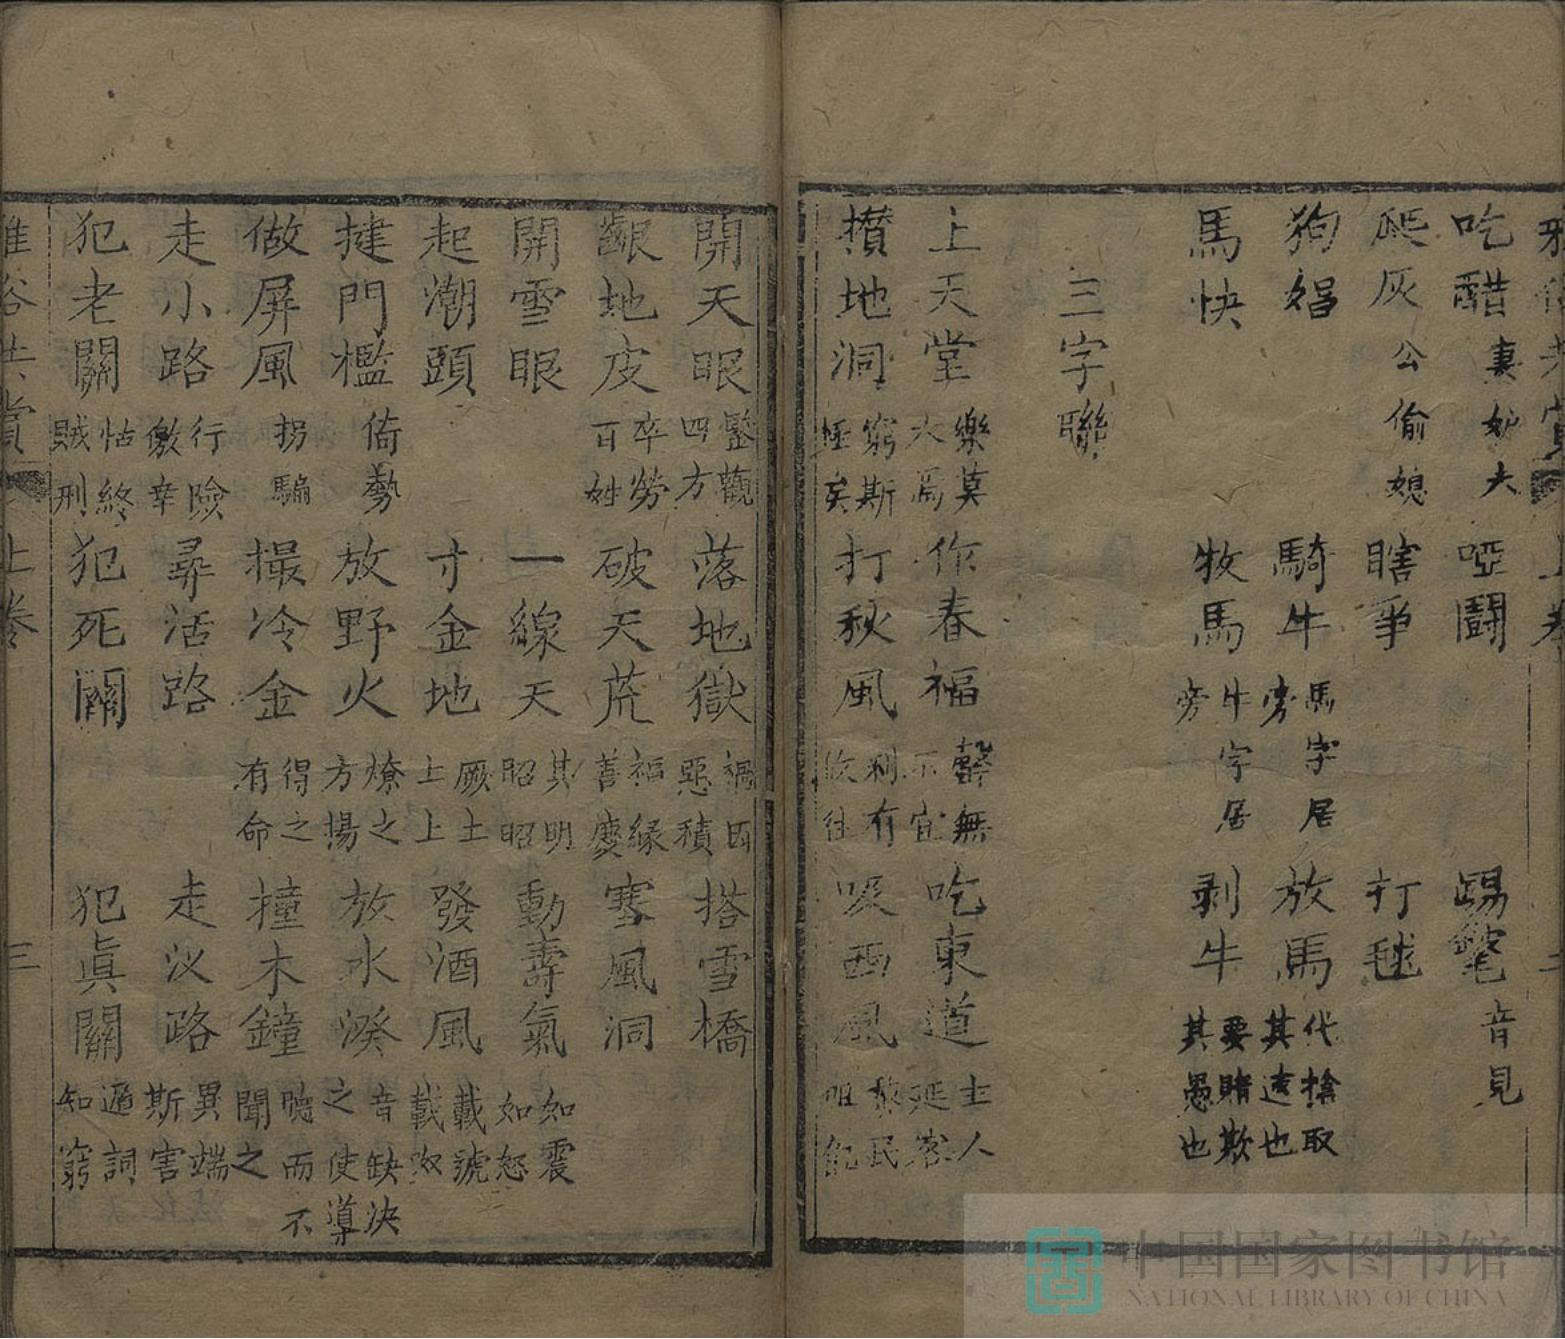 吃醋 妻妒夫 啞鬪 踢毽 音見
爬灰 公偷媳 瞎爭 打毬
狗娼 騎牛 馬字居旁 放馬 代捨取其遠也
馬快 牧馬 牛字居旁 剥牛 要賭欺其愚也
三字聯
上天堂 樂莫大焉 作春福 罄無不宜 吃東道 主人延客
攢地洞 窮斯極矣 打秋風 剩有收往 吸西風 黎民阻飢
開天眼 鑒觀四方 落地獄 禍因惡積 搭雪橋
齦地皮 卒勞百姓 破天荒 福緣善慶 塞風洞
開雪眼 一線天 其明昭昭 動壽氣 如震如怒
起潮頭 寸金地 厥土上上 發酒風 載號載呶
揵門檻 倚勢 放野火 燎之方揚 放水湀 音缺決之使導
做屏風 拐騙 撮冷金 得之有命 撞木鐘 聽而不聞之
走小路 行險僥幸 尋活路 走汊路 異端斯害
犯老關 怙終賊刑 犯死關 犯眞關 遁詞知窮
雅俗共賞 上卷 三
中国国家图书馆
NATIONAL LIBRARY OF CHINA